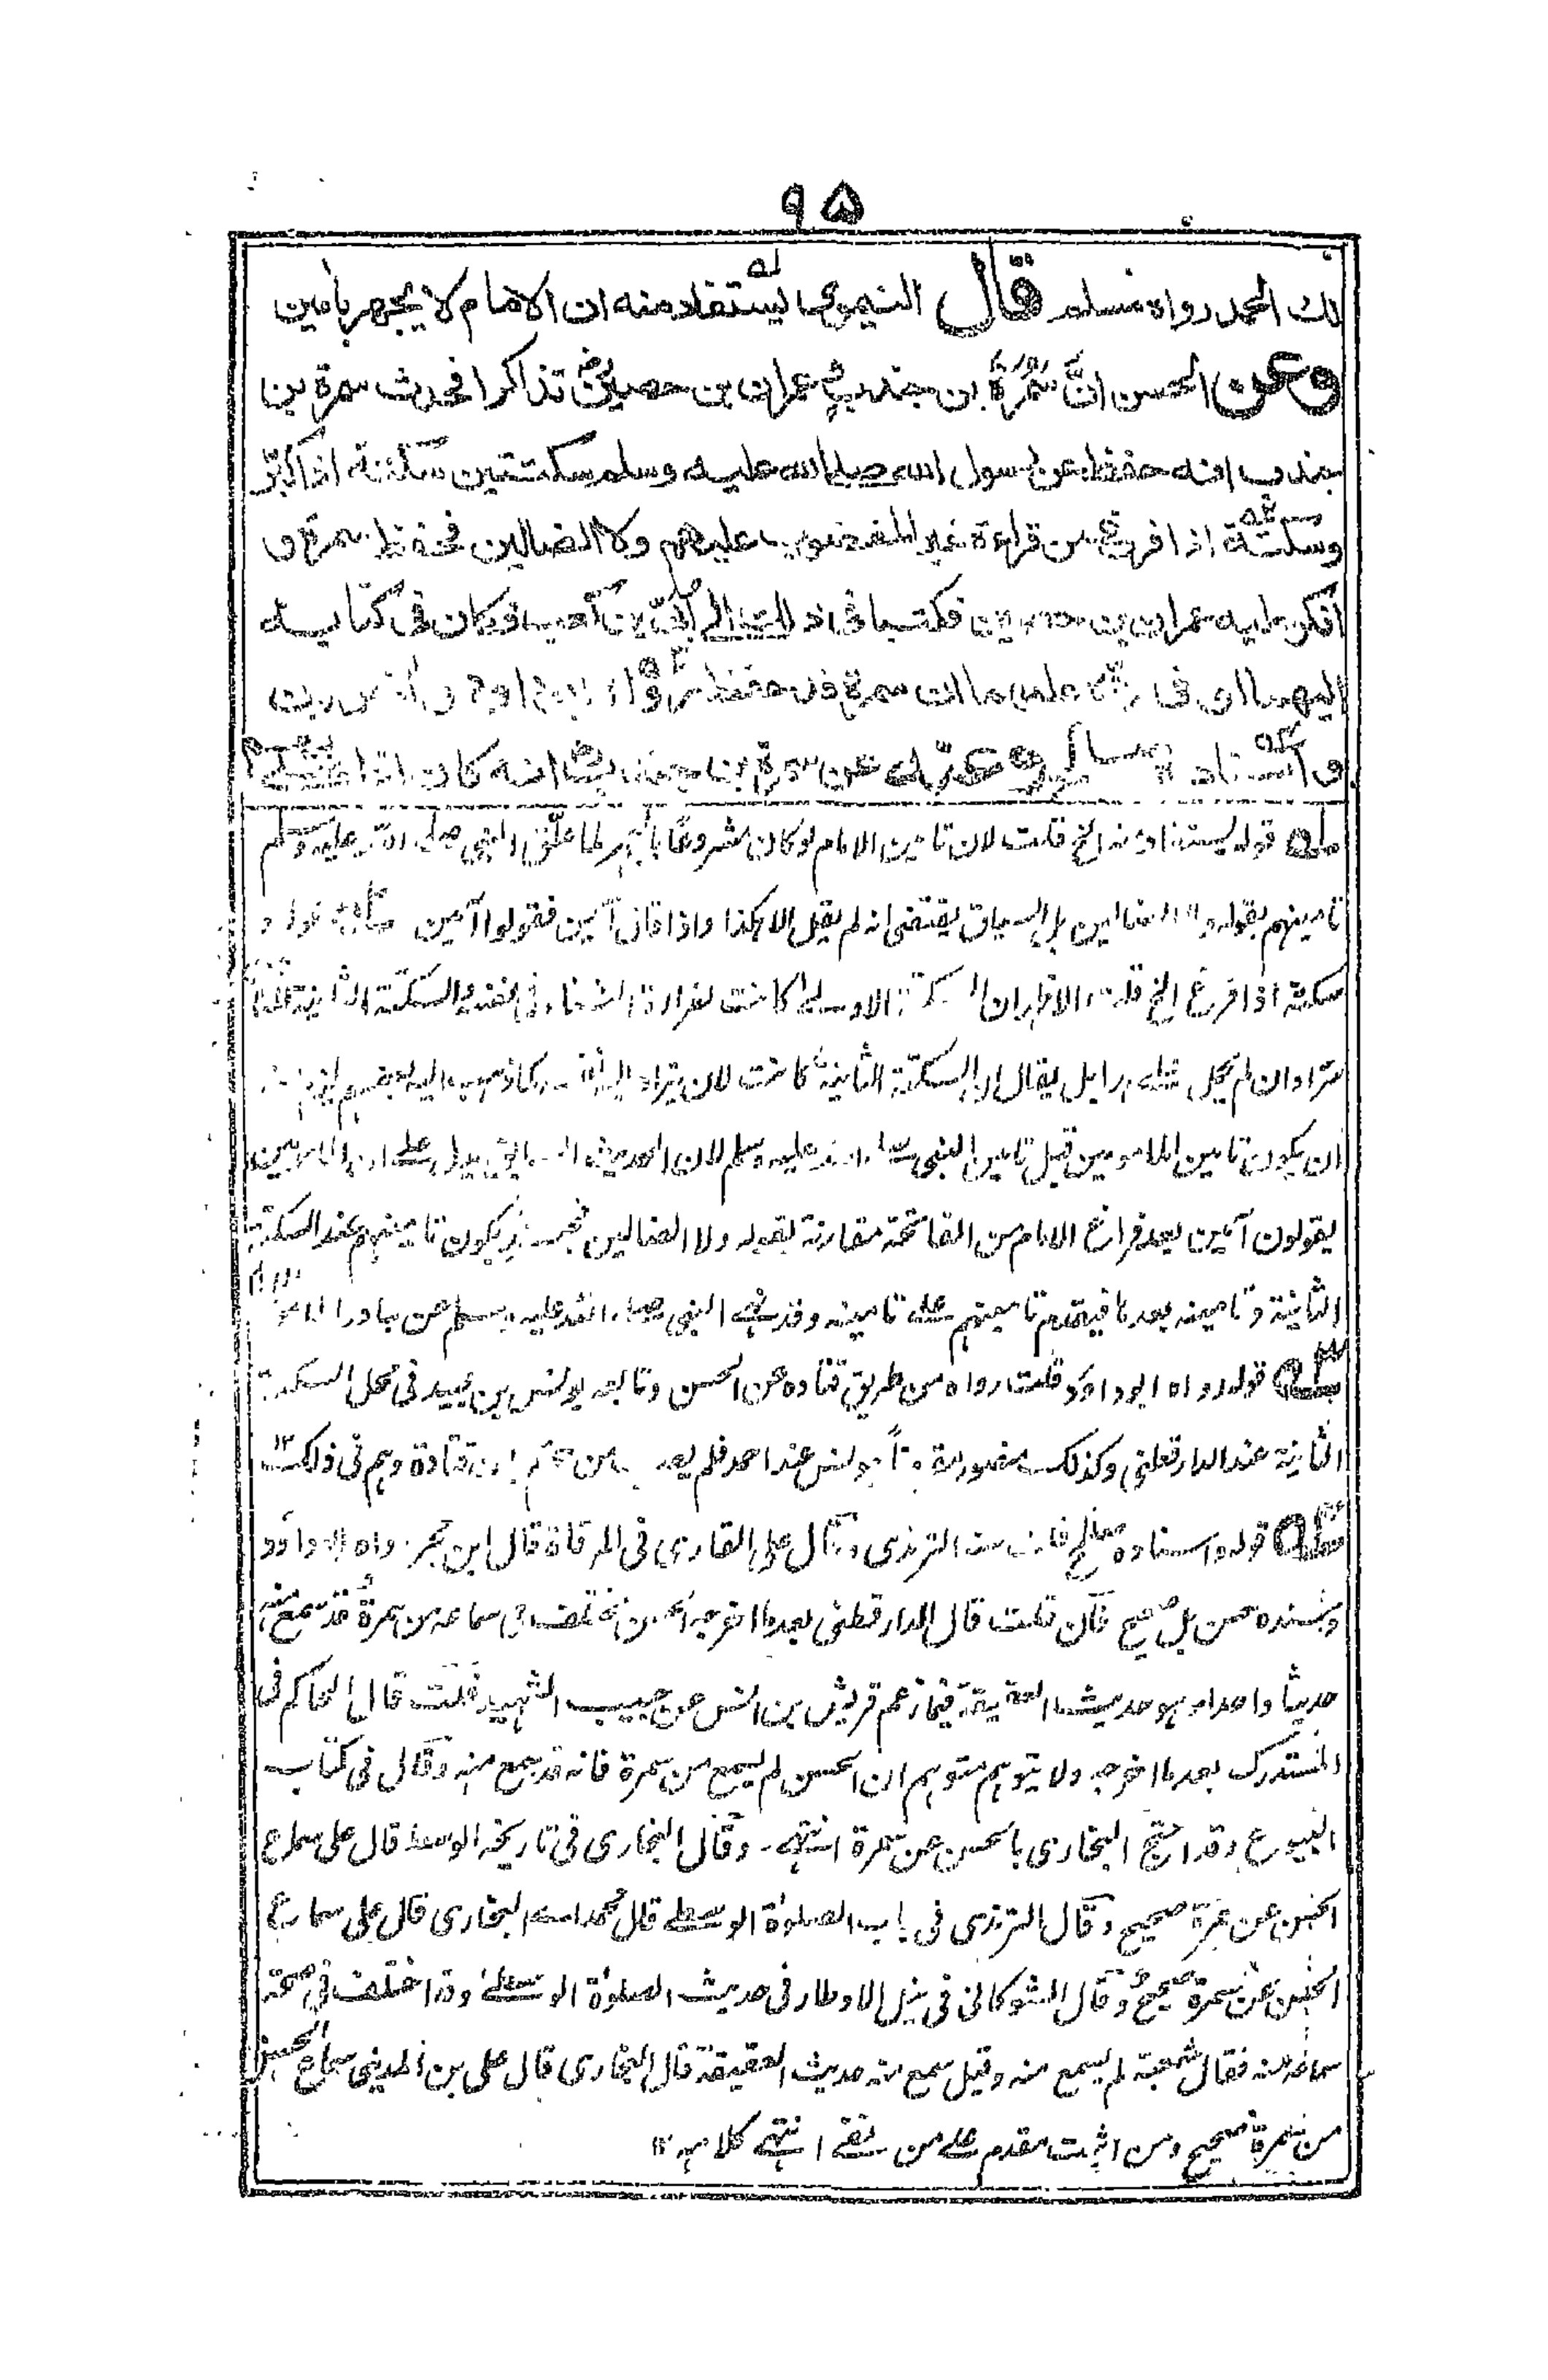 ٩٥
لك الحمد رواه مسلم قال النيموى يستفاد منه ان الامام لا يجهر بامين
وعن الحسن انّ سمرة بن جندب وعمران بن حصين تذاكرا فحدث سمرة بن
جندب انه حفظ عن رسول الله صلى الله عليه وسلم سكتتين سكتة اذا كبّر
وسكتة اذا فرغ من قراءة غير المغضوب عليهم ولا الضالين فحفظ سمرة و
انكر عليه عمران بن حصين فكتبا فى ذلك الى ابىّ بن كعب فكان فى كتابه
اليهما ان سمرة قد حفظ رواه ابو داود
واسناده صالح وعنه عن سمرة بن جندب انه كان اذا صلى
١ه قوله يستفاد منه الخ قلت لان تامين الامام لو كان مشروعًا بالجهر لما علّق النبي صلى الله عليه وسلم
تامينهم بقوله ولا الضالين بل السياق يقتضى انه لم يقل الا هكذا واذا قال آمين فقولوا آمين ٢ه قوله و
سكتة اذا فرغ الخ قلت الاظهر ان السكتة الاولى كانت لقراءة الثناء فى نفسه والسكتة الثانية
سرّا وان لم يحمل بل يقال ان السكتة الثانية كانت لان يتراد اليه نفسه كما ذهب اليه بعضهم
ان يكون تامين المامومين قبل تامين النبي صلى الله عليه وسلم لان الحديث السابق يدل على ان المامومين
يقولون آمين بعد فراغ الامام من الفاتحة مقارنة لقوله ولا الضالين يكون تامينهم عند السكتة
الثانية وتامينه بعدها فيقدم تامينهم على تامينه وقد نهى النبي صلى الله عليه وسلم عن مبادرة الامام
٣ه قوله رواه ابو داود قلت رواه من طريق قتادة عن الحسن وتابعه يونس بن عبيد فى محل السكتة
الثانية عند الدارقطنى وكذلك منصور ويونس عند احمد فلم يصب من زعم ان قتادة وهم فى ذلك ١٢
٤ه قوله واسناده صالح قلت حسنه الترمذى وقال على القارى فى المرقاة قال ابن حجر رواه ابو داود
وسنده حسن بل صحيح فان قلت قال الدارقطنى بعدما اخرجه الحسن مختلف فى سماعه من سمرة قد سمع منه
حديثا واحدا وهو حديث العقيقة فيما زعم قريش بن انس عن حبيب الشهيد قلت قال الحاكم فى
المستدرك بعدما اخرجه ولا يتوهم متوهم ان الحسن لم يسمع من سمرة فانه قد سمع منه وقال فى كتاب
البيوع وقد احتج البخارى بالحسن عن سمرة انتهى - وقال البخارى فى تاريخه الوسط قال على سماع
الحسن عن سمرة صحيح وقال الترمذى فى باب الصلوة الوسطى قال محمد اسے البخارى قال على سماع
الحسن عن سمرة صحيح وقال الشوكانى فى نيل الاوطار فى حديث الصلوة الوسطى وقد اختلف فى صحة
سماعه منه فقال شعبة لم يسمع منه وقيل سمع منه حديث العقيقة قال البخارى قال على بن المدينى سماع الحسن
من سمرة صحيح ومن اثبت مقدم على من نفى انتهى كلامه ١٢